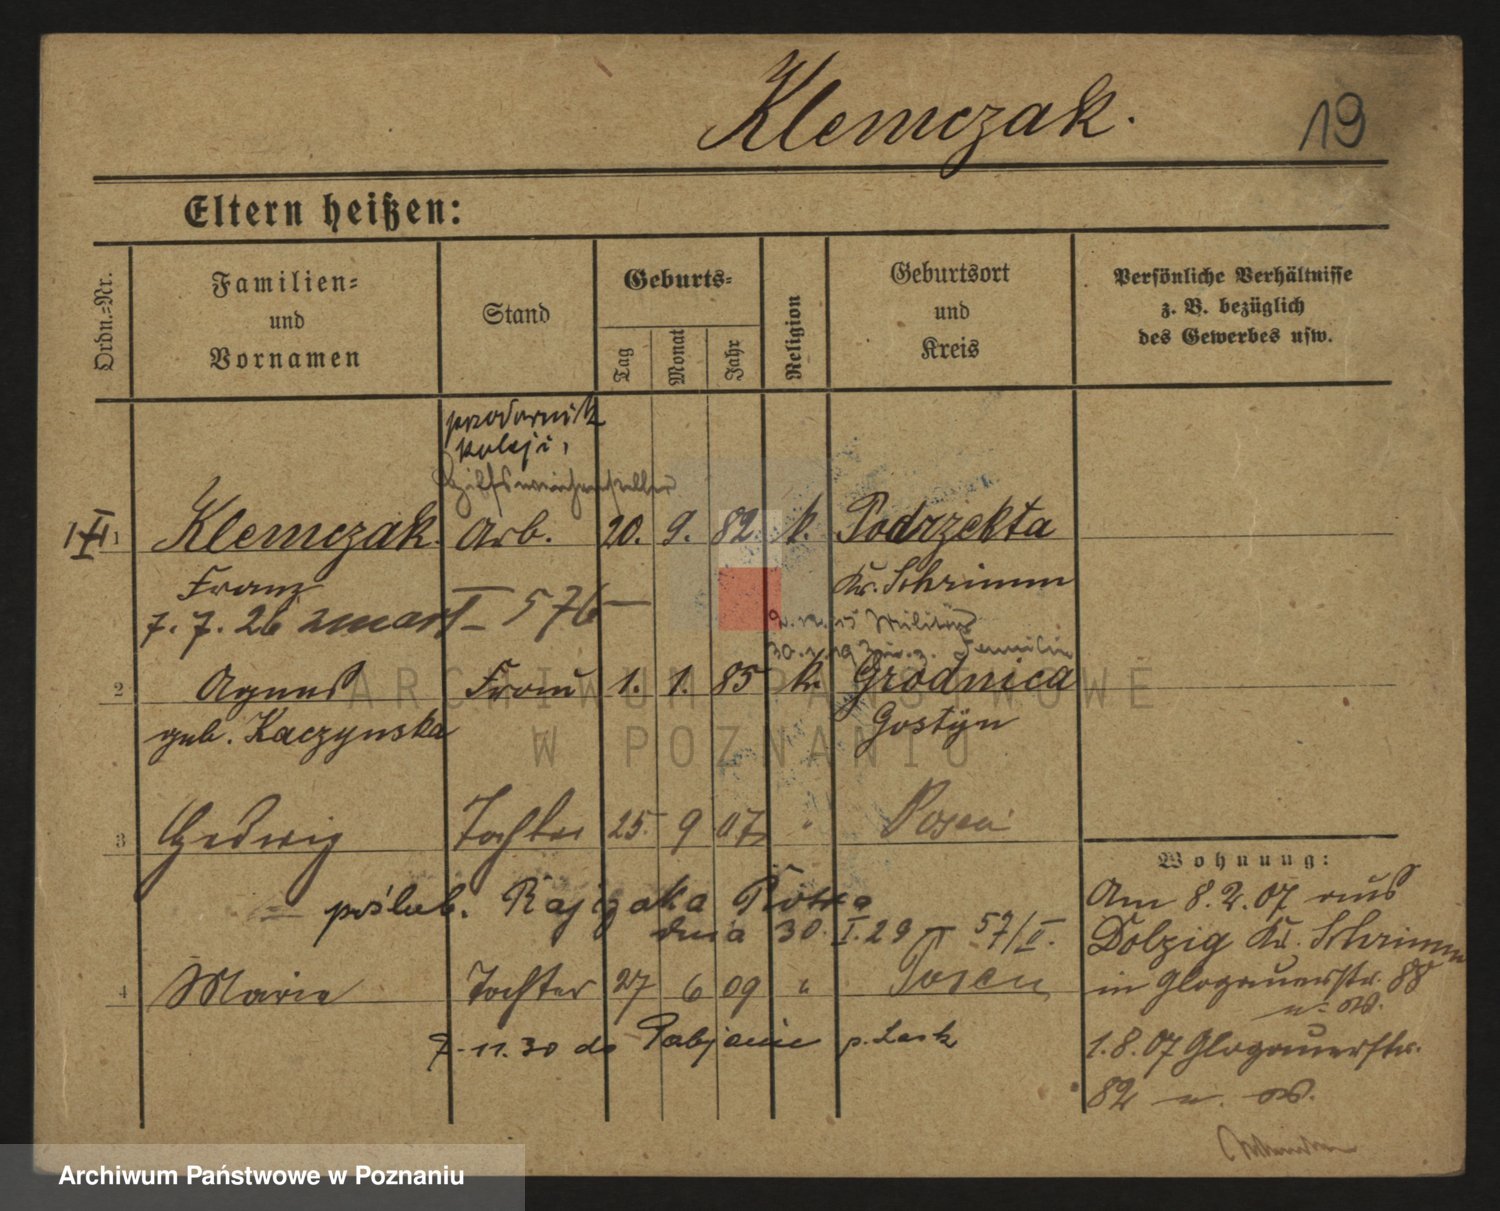 Klemczak.
19
Eltern heißen:
Ordn.=Nr.
Familien=
und
Vornamen
Stand
Geburts=
Tag
Monat
Jahr
Religion
Geburtsort
und
Kreis
Persönliche Verhältnisse
z. B. bezüglich
des Gewerbes usw.
koleji,
Hilfsweichensteller
1 Klemczak. Arb. 20. 9. 82. k. Podrzekta
Franz Kr. Schrimm
7. 7. 26 zmarł I 576
Militär
Familie
2 Agnes Frau 1. 1. 85 k. Grodnica
geb. Kaczynska Gostyn
3 Hedwig Tochter 25. 9 07 " Posen
= poślub. Rajczaka
dnia 30. I. 29 – 57/II.
4 Marie Tochter 27 6 09 " Posen
7.11.30 do Pabjanic p. Łask
Wohnung:
Am 8.2.07 aus
Dolzig Kr. Schrimm
in Glogauerstr. 88
1.8.07 Glogauerstr.
82
ARCHIWUM PAŃSTWOWE
W POZNANIU
Archiwum Państwowe w Poznaniu